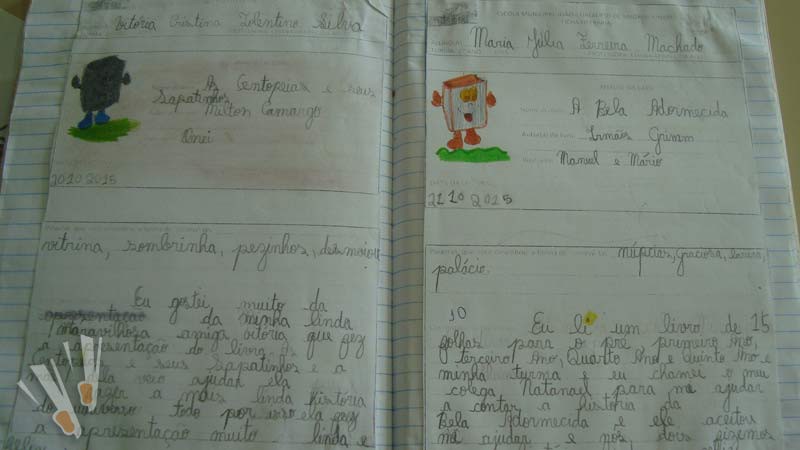 Vitória Cristina Tolentino Silva
As Centopeias e seus
Sapatinhos
Milton Camargo
20 10 2015
vitrina, sombrinha, pezinhos, desmaiou
Eu gostei muito da
apresentação da minha linda
maravilhosa amiga vitória que fez
a apresentação do livro as
Centopeias e seus sapatinhos e a
veio ajudar ela
fazer a mais linda história
do universo todo por isso ela fez
a apresentação muito linda e
Maria Júlia Ferreira Machado
A Bela Adormecida
Irmãos Grimm
Manuel e Mário
21 10 2015
núpcias, graciosa,
palácio.
10
Eu li um livro de 15
folhas para o pré, primeiro Ano,
terceiro Ano, Quarto Ano e Quinto Ano e
minha turma e eu chamei o meu
colega Natanael para me ajudar
a contar a história da
Bela Adormecida e ele aceitou
me ajudar e nós dois fizemos